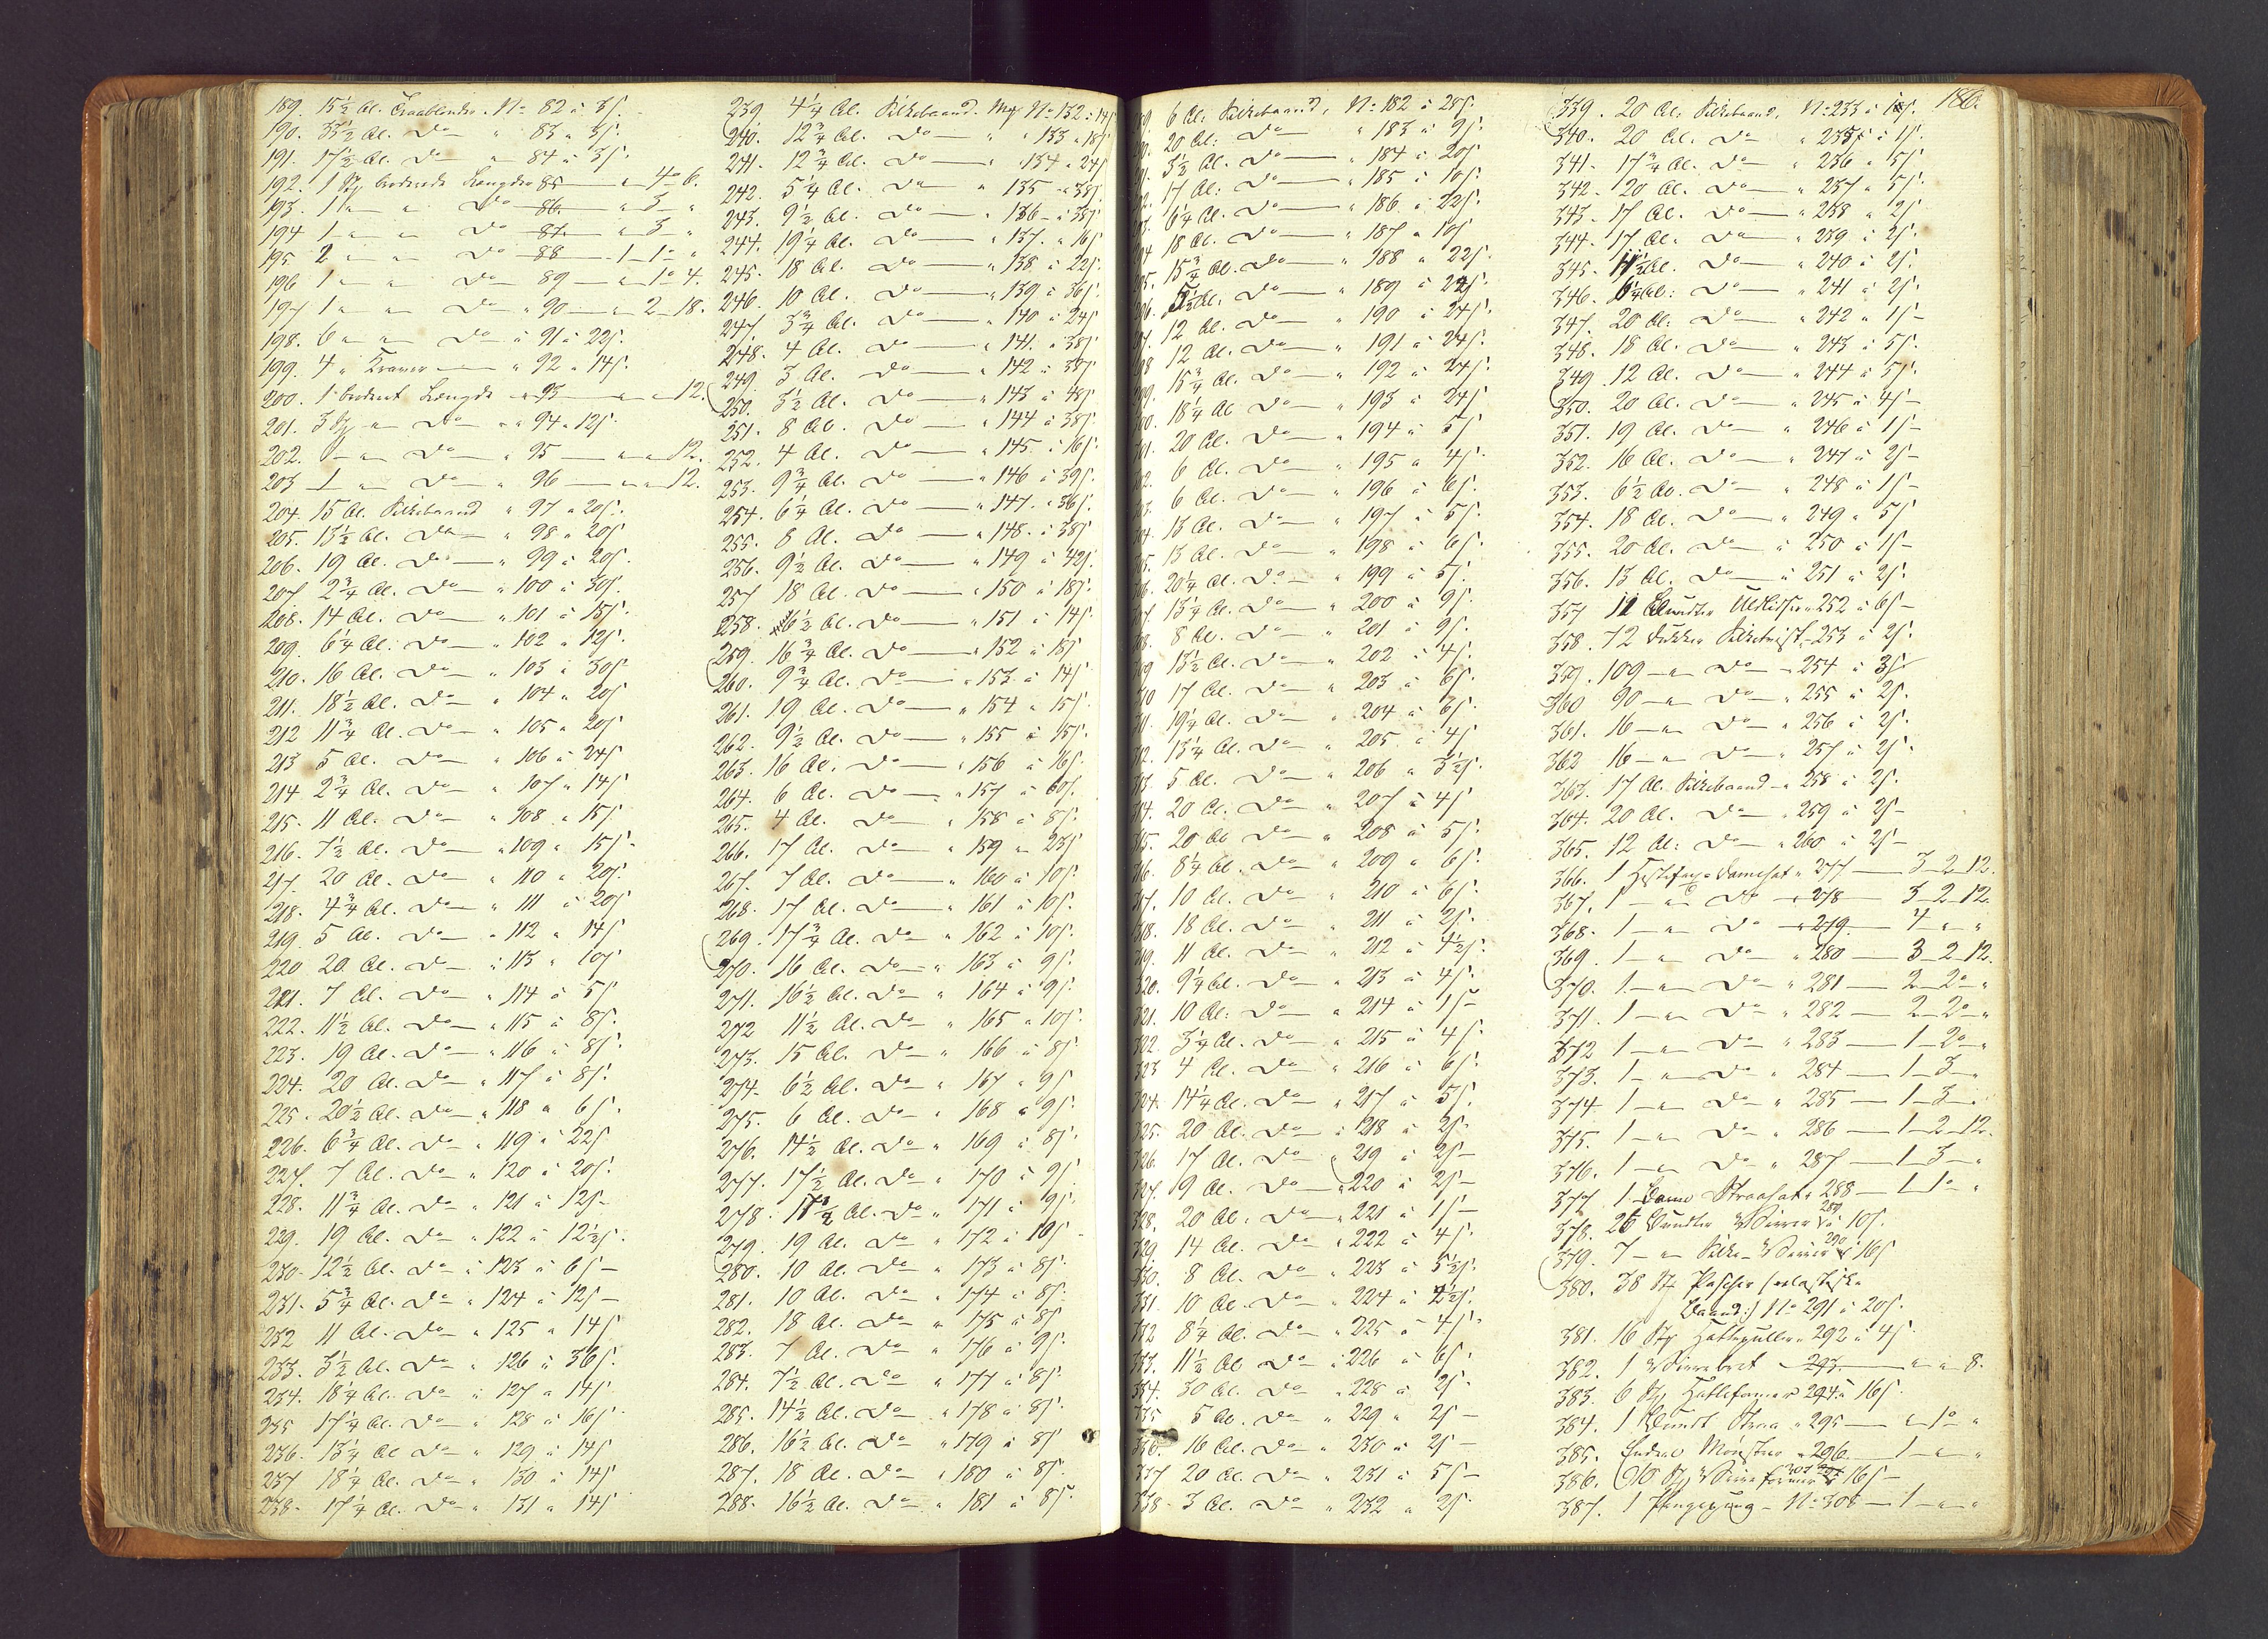 189. 15½ Al. Traablonder. No 82 à 3s.
190. 33½ Al. Do " 83 " 3s.
191. 17½ Al. Do " 84 à 3s.
192. 1 St. broderede Længder 85 — " 4 " 6.
193. 1 " " Do 86 — " 3 "
194 1 " " Do 87 — " 3 "
195. 2 " " Do 88 — 1 1 "
196 1 " " Do 89 — " 1 " 4.
197 1 " " Do " 90 — " 2 18.
198. 6 " " Do à 91 à 22s.
199. 4 " Kraver " 92 " 14s.
200. 1 broderet Længde " 93 — " " 12.
201. 3 St. " Do " 94 " 12s.
202. 1 " Do " 95 — " " 12.
203 1 " Do " 96 — " " 12.
204. 15 Al. Silkebaand " 97 " 20s.
205. 13½ Al. Do " 98 " 20s
206. 19 Al. Do " 99 à 20s.
207 2¾ Al. Do " 100 à 30s.
208. 14 Al. Do " 101 à 15s.
209. 6¼ Al. Do " 102 " 12s.
210. 16 Al. Do " 103 à 30s
211. 18½ Al. Do " 104 " 20s
212 11¾ Al. Do " 105 " 20s
213 5 Al. Do " 106 à 24s
214 2¾ Al. Do " 107 " 14s
215. 11 Al. Do " 108 " 15s
216. 7½ Al. Do " 109 " 15s.
217. 20 Al. Do " 110 " 20s.
218. 4¾ Al. Do " 111 à 20s
219. 5 Al. Do " 112 " 14s
220 20 Al. Do " 113 " 10s
221. 7 Al. Do " 114 à 5s
222. 11½ Al. Do " 115 à 8s.
223. 19 Al. Do " 116 à 8s.
224. 20 Al. Do " 117 à 8s.
225. 20½ Al. Do " 118 " 6s.
226. 6¾ Al. Do " 119 " 22s
227. 7 Al. Do " 120 à 20s.
228. 11¾ Al. Do " 121 à 12s
229. 19 Al. Do " 122 à 12½s.
230. 12½ Al. Do à 123 à 6s
231. 5¾ Al. Do " 124 à 12s
232 11 Al. Do " 125 " 14s
233. 3½ Al. Do " 126 à 36s.
234. 18¼ Al. Do à 127 " 14s
235 17¼ Al. Do " 128 à 16s
236. 13¼ Al. Do " 129 à 14s
237 18¼ Al. Do " 130 à 14s
238. 17¼ Al. Do " 131 " 14s
239. 4¼ Al. Silkebaand. Mrk No 132 à 14s
240. 12¾ Al. Do " 133 " 18s
241. 12¾ Al. Do " 134 " 24s
242. 5¼ Al. Do " 135 " 38s
243. 9½ Al. Do " 136 à 38s
244. 19¼ Al. Do " 137 " 16s
245. 18 Al. Do " 138 à 22s.
246. 10 Al. Do " 139 à 36s.
247. 3¾ Al. Do " 140 à 24s
248. 4 Al. Do " 141 à 38s
249. 3 Al. Do " 142 à 38s
250. 3½ Al. Do " 143 à 48s
251. 8 Al. Do " 144 à 38s
252. 4 Al. Do " 145 à 16s.
253. 9¾ Al. Do " 146 à 39s.
254. 6¼ Al. Do " 147 " 36s.
255. 8 Al. Do " 148 à 38s
256. 9½ Al. Do " 149 à 42s.
257 18 Al. Do " 150 à 18s.
258. 16½ Al. Do " 151 à 14s.
259. 16¾ Al. Do " 152 à 18s
260. 9¾ Al. Do " 153 à 14s
261. 19 Al. Do " 154 " 15s.
262. 9½ Al. Do " 155 à 15s.
263. 16 Al. Do " 156 à 16s.
264. 6 Al. Do " 157 à 60s.
265. 4 Al. Do " 158 à 8s.
266. 17 Al. Do " 159 " 23s
267. 7 Al. Do " 160 à 10s.
268. 17 Al. Do " 161 à 10s.
269. 17¾ Al. Do " 162 à 10s.
270. 16 Al. Do " 163 à 9s.
271. 16½ Al. Do " 164 à 9s.
272 11½ Al. Do " 165 " 10s.
273. 15 Al. Do " 166 à 8s
274. 6½ Al. Do " 167 " 9s
275. 6 Al. Do " 168 " 9s.
276. 14½ Al. Do " 169 à 8s.
277. 17½ Al. Do " 170 à 9s
278. 17¾ Al. Do " 171 à 9s.
279. 19 Al. Do " 172 à 10s
280. 10 Al. Do " 173 à 8s.
281. 10 Al. Do " 174 à 8s.
282. 18 Al. Do " 175 à 8s
283. 7 Al. Do " 176 à 9s.
284. 7½ Al. Do " 177 à 8s.
285. 14½ Al. Do " 178 à 8s.
286. 16½ Al. Do " 179 à 8s
287. 18 Al. Do " 180 à 8s.
288. 16½ Al. Do " 181 à 8s.
186.
9. 6 Al. Silkebaand, No 182 à 28s.
0. 20 Al. Do " 183 à 9s.
1. 3½ Al. Do " 184 à 20s
2. 17 Al. Do " 185 à 10s.
3. 6¼ Al. Do " 186 à 22s.
94 18 Al. Do " 187 " 10s
95. 15¾ Al. Do " 188 " 22s.
96. 5½ Al. Do " 189 à 22s.
97. 12 Al. Do " 190 à 24s.
98 12 Al. Do " 191 à 24s.
99. 15¾ Al. Do " 192 à 24s.
00. 18¼ Al. Do " 193 à 24s
01. 20 Al. Do " 194 à 5s
02. 6 Al. Do " 195 " 4s.
03. 6 Al. Do " 196 à 6s.
04. 13 Al. Do " 197 à 5s.
05. 13 Al. Do " 198 à 6s.
06. 20¼ Al. Do " 199 à 5s.
07. 13¼ Al. Do " 200 à 9s.
08. 8 Al. Do " 201 à 9s.
09 13½ Al. Do " 202 à 4s.
10 17 Al. Do " 203 à 6s.
11. 19¼ Al. Do " 204 à 6s.
12. 13¼ Al. Do " 205 à 4s
13. 5 Al. Do " 206 " 3½s.
14. 20 Al. Do " 207 à 4s
15. 20 Al. Do " 208 à 5s.
16. 8¼ Al. Do " 209 " 6s.
17. 10 Al. Do " 210 à 6s.
318. 18 Al. Do " 211 à 2s.
19. 11 Al. Do " 212 à 4½s.
320. 9¼ Al. Do " 213 à 4s.
321. 10 Al. Do " 214 à 1s
322. 3¼ Al. Do " 215 à 4s.
323 4 Al. Do " 216 à 6s.
324. 14¼ Al. Do " 217 à 5s.
325. 20 Al. Do à 218 à 2s.
326. 17 Al. Do " 219 à 2s
327. 9 Al. Do " 220 à 2s
328. 20 Al. Do " 221 à 1s
329. 14 Al. Do " 222 à 4s.
330. 8 Al. Do " 223 à 5½s.
331. 10 Al. Do " 224 à 4½s.
332 8¼ Al. Do " 225 " 4s.
333. 11½ Al. Do à 226 à 6s.
334. 30 Al. Do " 228 à 2s.
335 5 Al. Do " 229 " 2s
336. 16 Al. Do " 230 à 2s
337 20 Al. Do " 231 à 5s
338. 3 Al. Do " 232 " 2s.
339. 20 Al. Silkebaand, No 233 à 1s.
340. 20 Al. Do " 235 à 1s.
341. 17¾ Al. Do " 236 " 5s.
342. 20 Al. Do " 237 " 5s.
343. 17 Al. Do " 238 " 2s
344. 17 Al. Do " 239 à 2s.
345. 11½ Al. Do " 240 à 2s.
346. 6¼ Al. Do " 241 à 2s.
347. 20 Al. Do " 242 " 1s
348. 18 Al. Do " 243 à 5s.
349. 12 Al. Do " 244 à 5s.
350. 20 Al. Do " 245 à 4s
351. 19 Al. Do " 246 à 1s
352. 16 Al. Do " 247 à 2s
353. 6½ Al. Do " 248 à 1s
354. 18 Al. Do " 249 " 5s
355. 20 Al. Do à 250 à 1s
356. 13 Al. Do à 251 à 2s.
357 11 Bundter Uldlidser " 252 à 6s
358. 72 Dukker Silketvist 253 à 2s.
359. 109 " Do " 254 à 3s
360 90 " Do " 255 à 2s.
361. 16 " Do " 256 à 2s.
362 16 " Do " 257 à 2s.
363. 17 Al. Silkebaand " 258 à 2s.
364. 20 Al. Do " 259 à 2s
365. 12 Al. Do " 260 à 2s
366. 1 Damehat " 277 — 3 2 12.
367. 1 " Do " 278 3 2 12.
368. 1 " Do " 279 4 " "
369. 1 " Do " 280 — 3 2 12.
370. 1 " Do " 281 — 2 2 "
371. 1 " Do " 282 — 2 2 "
372 1 " Do " 283 — 1 2 "
373. 1 " Do " 284 — 1 3 "
374 1 " Do " 285 — 1 3 "
375. 1 " Do " 286 — 1 2 12.
376. 1 " Do " 287 — 1 3 "
377 1 Dame Straahat " 288 — 1 1 "
378. 26 Bundter 289 à 10s.
379. 7 " Silke 290 à 16s
380. 38 St. elastiske
Baand:/ No 291 à 20s.
381. 16 St. Hattepuller " 292 à 4s.
382. 1 293 — " " 8.
383. 6 St. Hatteformer 294 à 16s.
384. 1 Bundt Straa " 295 — " 1 "
385. Endeel Mønstre " 296 — 1 " "
386. St. former 16s
387. 1 No 308 — 1 " "